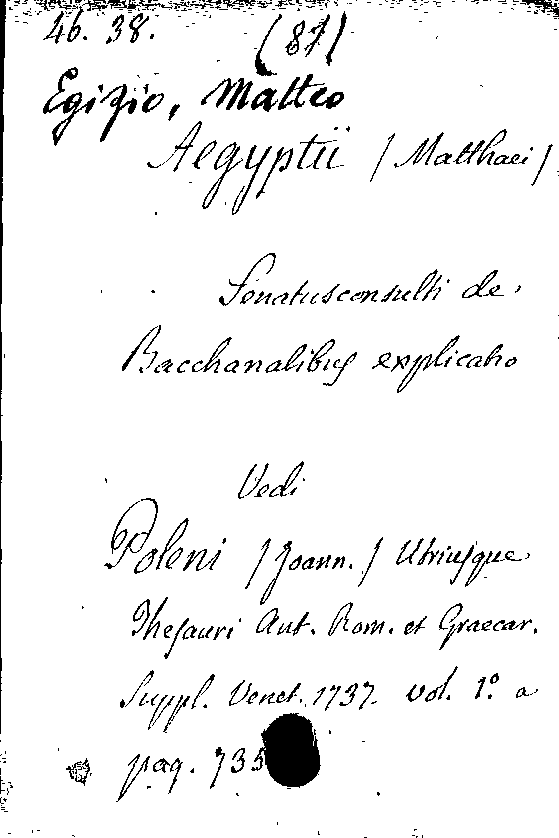 46. 38.
(87)
Egizio, Matteo
Aegyptii (Matthaei)
Senatusconsulti de
Bacchanalibus explicatio
Vedi
Poleni (Joann.) Utriusque
Thesauri Ant. Rom. et Graecar.
Suppl. Venet. 1737. vol. 1º a
pag. 735